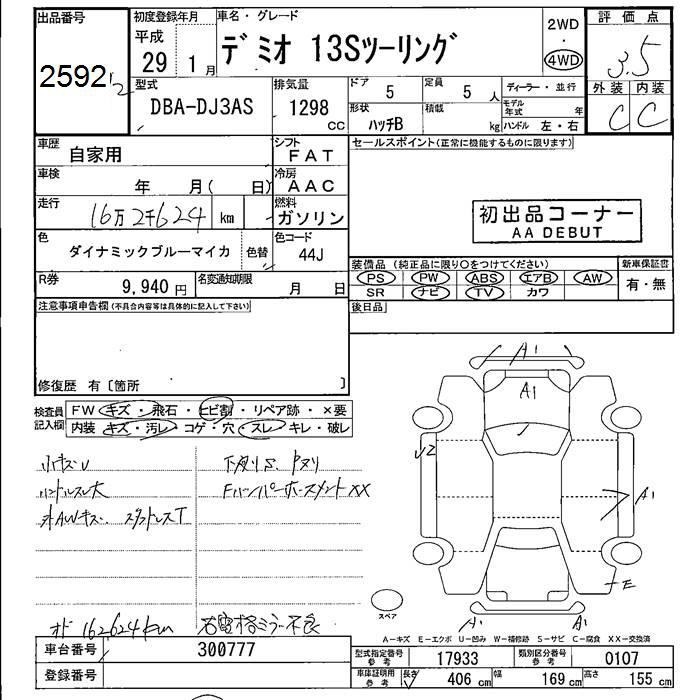 出品番号
2592
初度登録年月
平成
29 1月
車名・グレード
デミオ 13Sツーリング
2WD
・
4WD
評価点
3.5
外装 内装
C C
型式
DBA-DJ3AS
排気量
1298
CC
ドア
5
定員
5 人
形状
ハッチB
積載
kg
ディーラー・並行
モデル年式 年
ハンドル 左・右
車歴
自家用
シフト
FAT
車検
年 月( 日)
冷房
AAC
走行
16万2千624 km
燃料
ガソリン
色
ダイナミックブルーマイカ
色替
色コード
44J
R券
9,940 円
名変通知期限
月 日
セールスポイント(正常に機能するものに限ります)
初出品コーナー
AA DEBUT
装備品 (純正品に限り○をつけてください)
PS PW ABS エアB AW
SR ナビ TV カワ
新車保証書
有・無
後日品
注意事項申告欄 (不具合内容等は具体的に記入して下さい)
修復歴 有〔箇所 〕
検査員記入欄
FW キズ・飛石・ヒビ割・リペア跡・×要
内装 キズ・汚レ・コゲ・穴・スレ・キレ・破レ
小キズU
下廻りS
ハンドルスレ大
XX
AWキズ スタッドレスT
オド 162624km
右電格ミラー不良
A1
A1
U2
A1
E
A1
A1
スペア
A－キズ E－エクボ U－凹み W－補修跡 S－サビ C－腐食 XX－交換済
車台番号
300777
登録番号
型式指定番号
参考
17933
類別区分番号
参考
0107
車庫証明用
参考
長さ
406 cm
幅
169 cm
高さ
155 cm